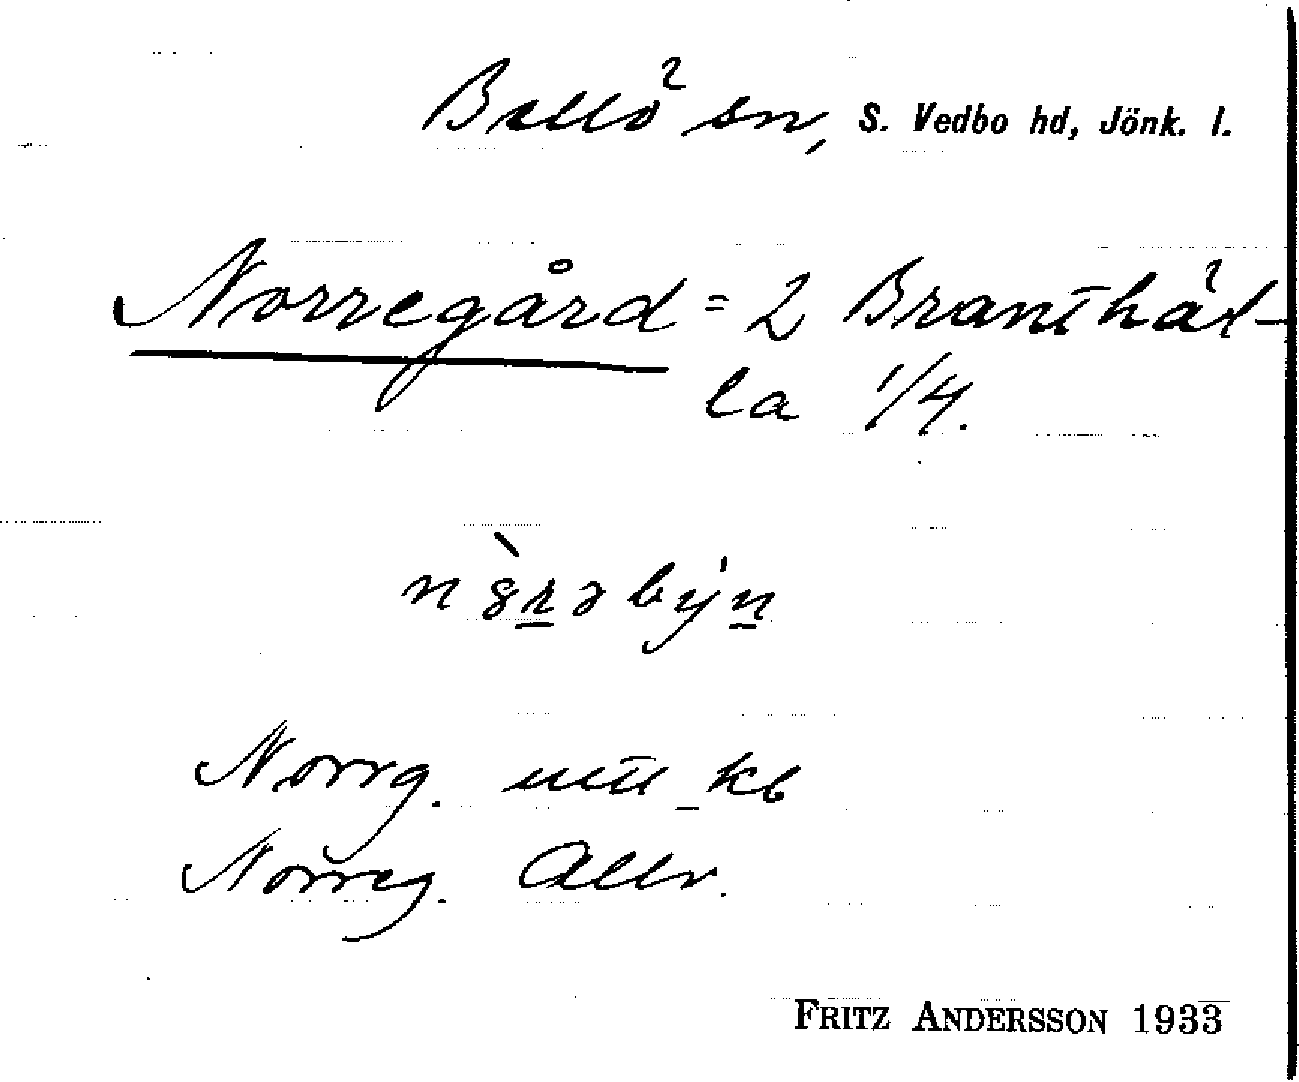 Bellö sn, S. Vedbo hd, Jönk. l.
Norregård = 2 Brant häl-
la 1/4.
Norrg. utt kb
Norreg. Allv.
FRITZ ANDERSSON 1933